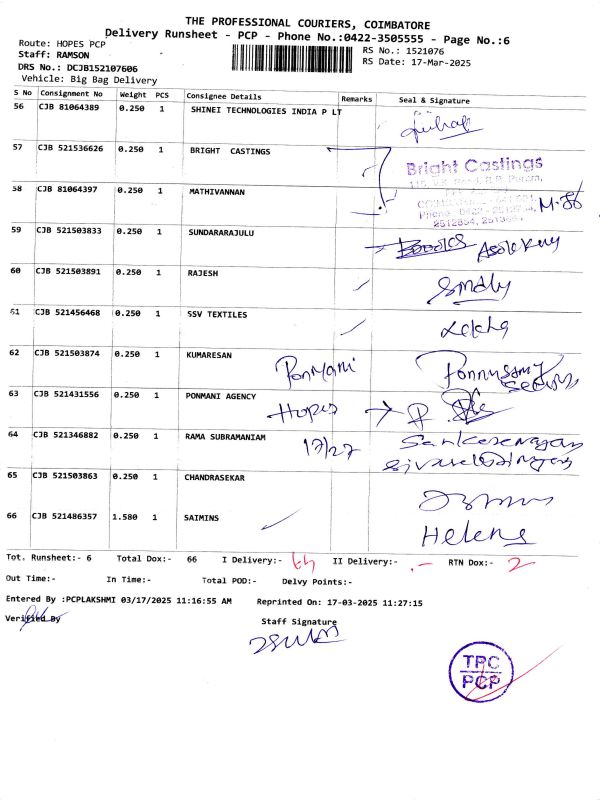 THE PROFESSIONAL COURIERS, COIMBATORE
Delivery Runsheet - PCP - Phone No.:0422-3505555 - Page No.:6
Route: HOPES PCP
RS No.: 1521076
Staff: RAMSON
RS Date: 17-Mar-2025
DRS No.: DCJB152107606
Vehicle: Big Bag Delivery
S No Consignment No Weight PCS Consignee Details Remarks Seal & Signature
56 CJB 81064389 0.250 1 SHINEI TECHNOLOGIES INDIA P LT
57 CJB 521536626 0.250 1 BRIGHT CASTINGS
Bright Castings
58 CJB 81064397 0.250 1 MATHIVANNAN
2512854, 2513
59 CJB 521503833 0.250 1 SUNDARARAJULU
60 CJB 521503891 0.250 1 RAJESH
61 CJB 521456468 0.250 1 SSV TEXTILES
62 CJB 521503874 0.250 1 KUMARESAN Ponmani Ponnusamy
63 CJB 521431556 0.250 1 PONMANI AGENCY Hopes
64 CJB 521346882 0.250 1 RAMA SUBRAMANIAM 17/27
65 CJB 521503863 0.250 1 CHANDRASEKAR
66 CJB 521486357 1.580 1 SAIMINS Helens
Tot. Runsheet:- 6 Total Dox:- 66 I Delivery:- 64 II Delivery:- - RTN Dox:- 2
Out Time:- In Time:- Total POD:- Delvy Points:-
Entered By :PCPLAKSHMI 03/17/2025 11:16:55 AM Reprinted On: 17-03-2025 11:27:15
Verified By Staff Signature
TPC
PCP